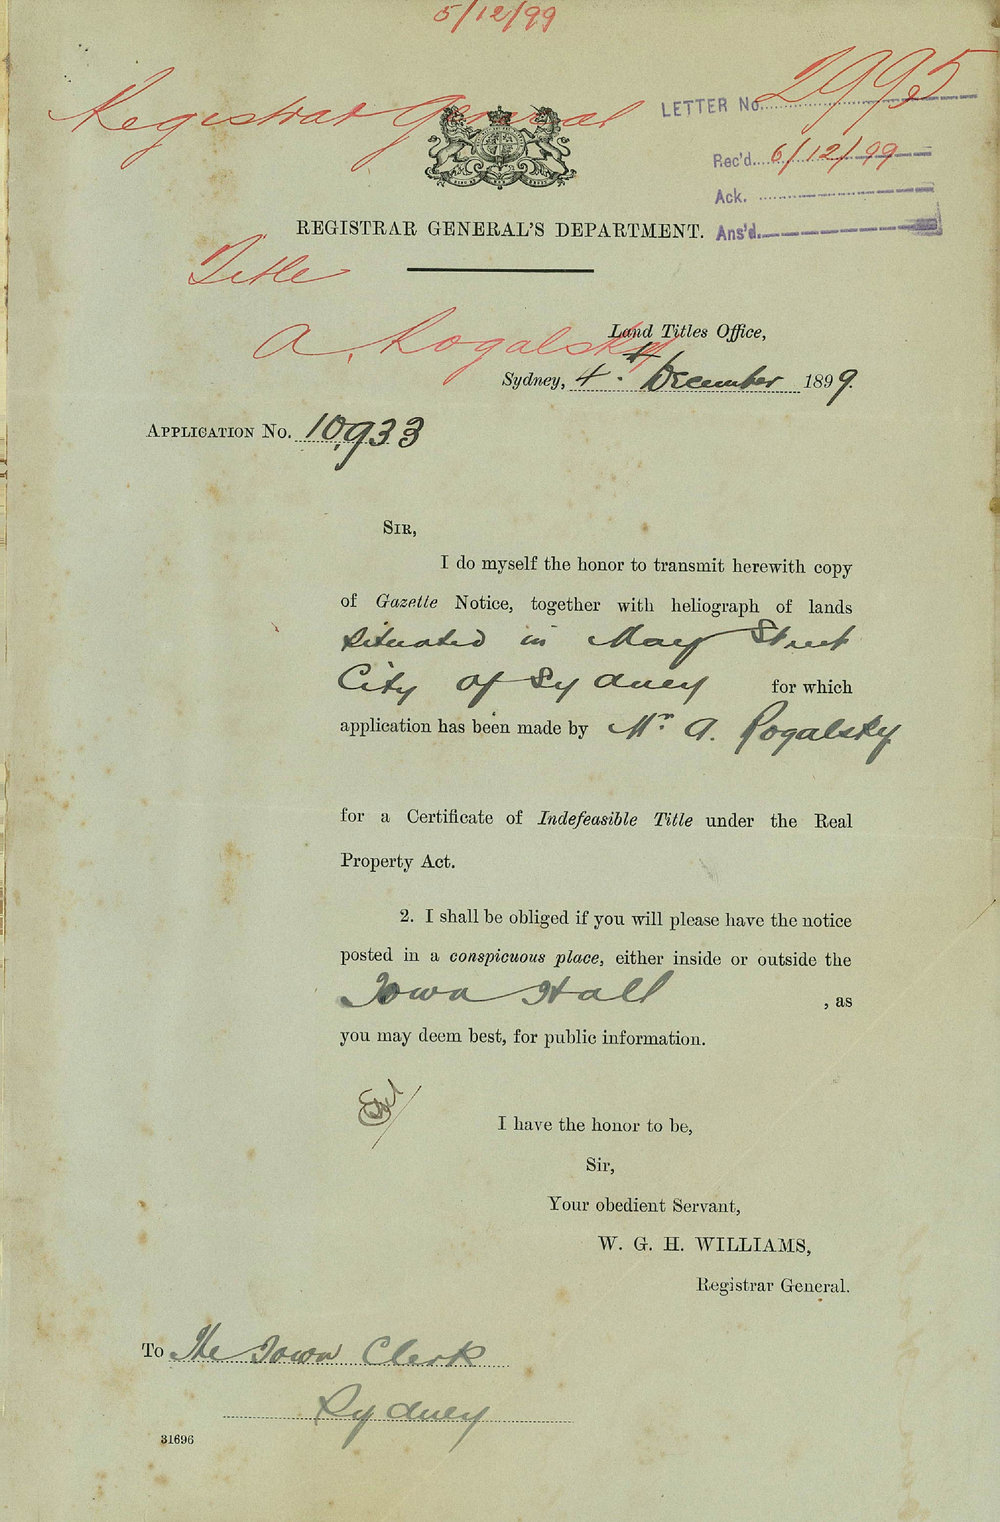 5/12/99
Registrar General
LETTER No. 2995
Rec'd. 6/12/99
Ack.
Ans'd.
REGISTRAR GENERAL'S DEPARTMENT.
Title
A. Rogalsky
Land Titles Office,
Sydney, 4th December 1899.
APPLICATION No. 10,933
SIR,
I do myself the honor to transmit herewith copy
of Gazette Notice, together with heliograph of lands
situated in May Street
City of Sydney for which
application has been made by Mr. A. Rogalsky
for a Certificate of Indefeasible Title under the Real
Property Act.
2. I shall be obliged if you will please have the notice
posted in a conspicuous place, either inside or outside the
Town Hall , as
you may deem best, for public information.
I have the honor to be,
Sir,
Your obedient Servant,
W. G. H. WILLIAMS,
Registrar General.
To The Town Clerk
Sydney
31696